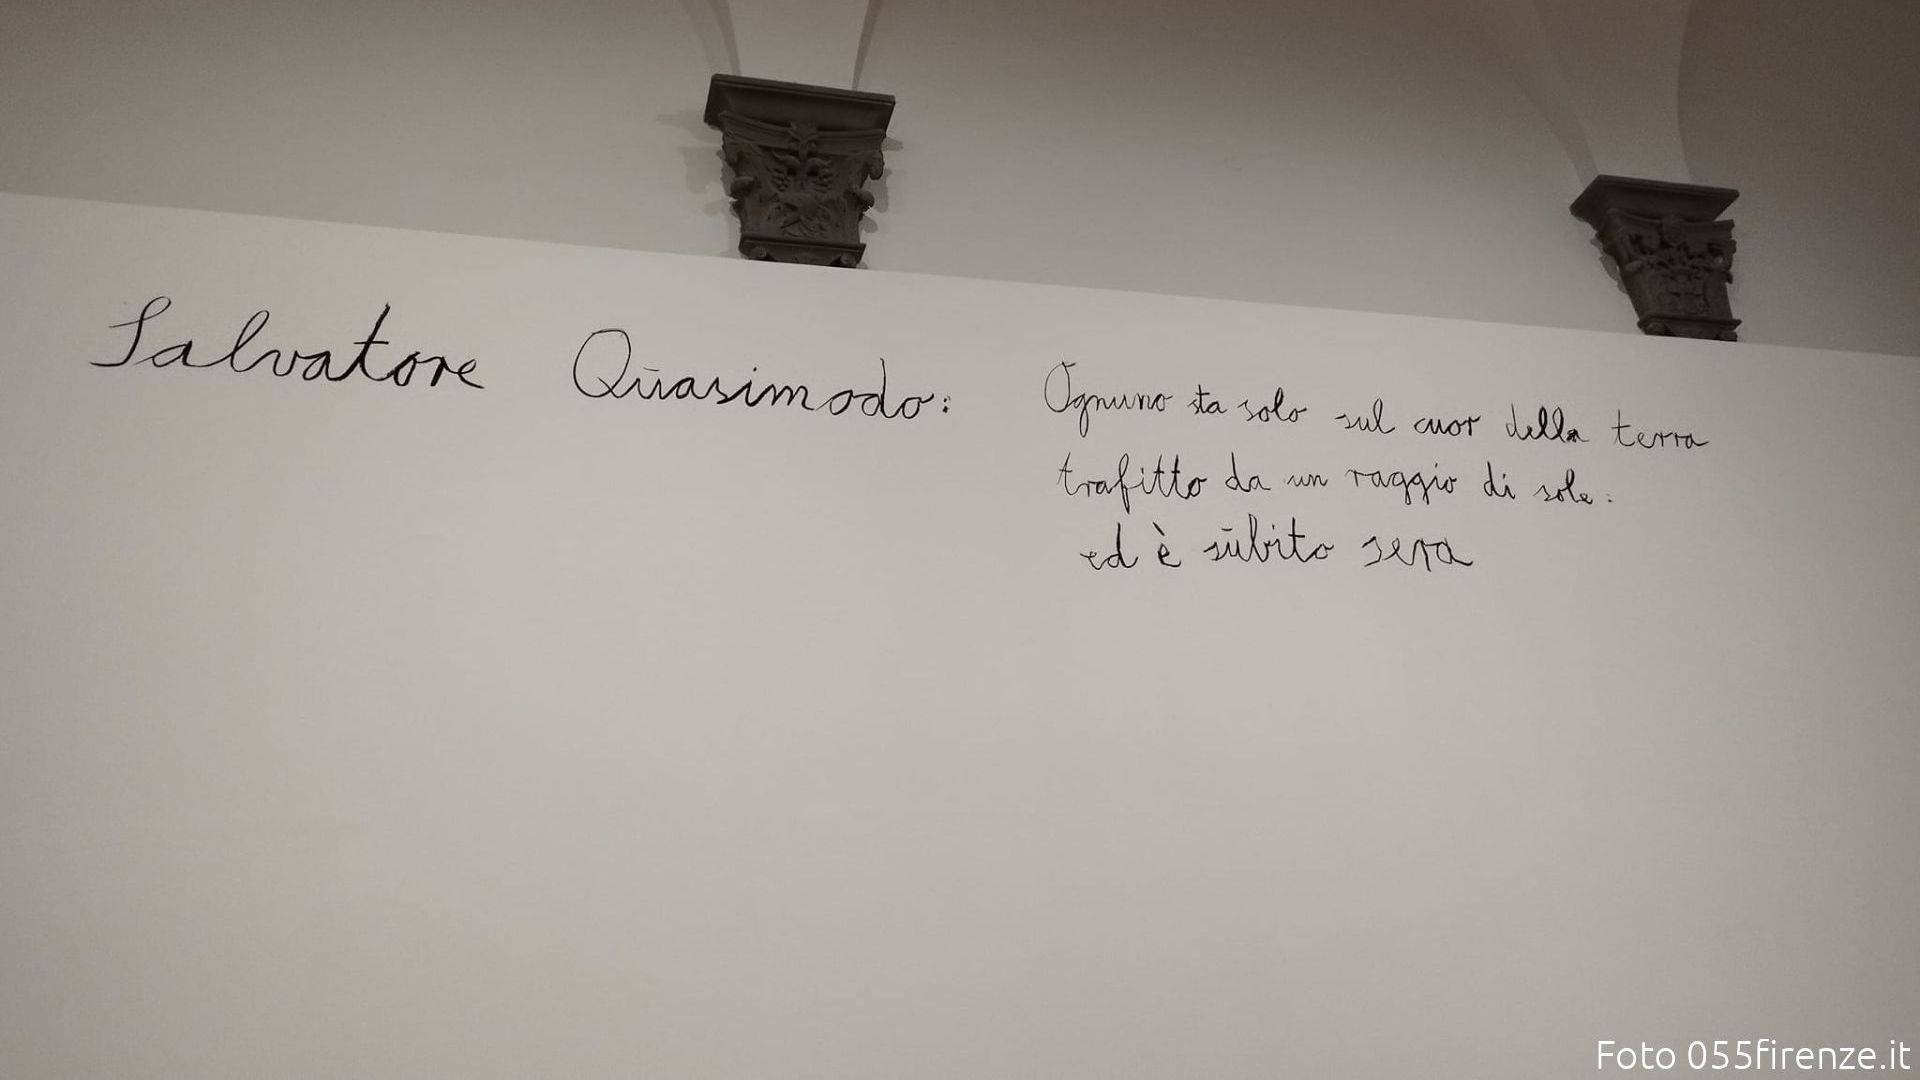 Salvatore Quasimodo:
Ognuno sta solo sul cuor della terra
trafitto da un raggio di sole:
ed è sūbito sera
Foto 055firenze.it